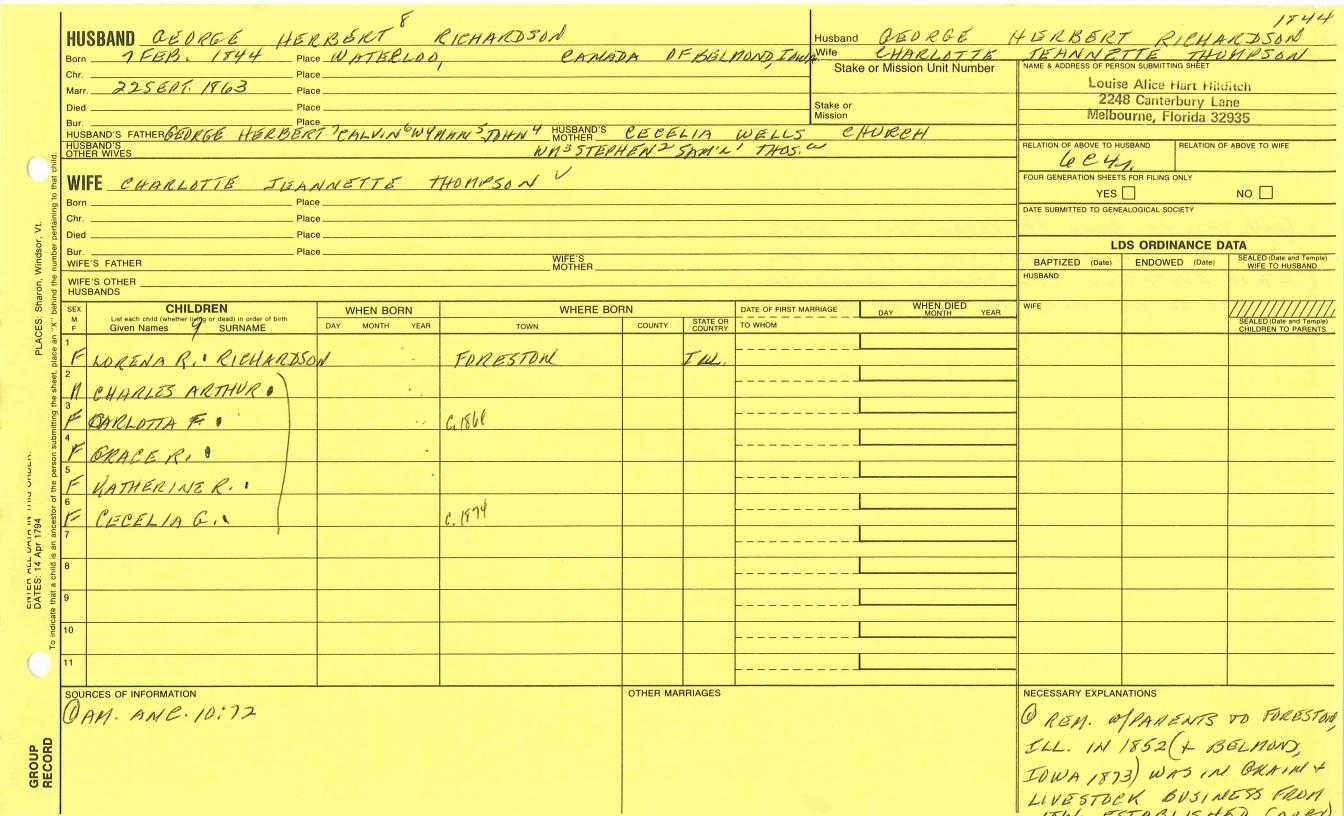 1844
HUSBAND GEORGE HERBERT 8 RICHARDSON
Born 7 FEB. 1844 Place WATERLOO, CANADA OF BELMOND, IOWA
Chr. Place
Marr. 22 SEPT. 1863 Place
Died Place
Bur. Place
HUSBAND'S FATHER GEORGE HERBERT 7 CALVIN 6 WYMAN 5 JOHN 4 HUSBAND'S MOTHER CECELIA WELLS CHURCH
HUSBAND'S OTHER WIVES WM 3 STEPHEN 2 SAM'L 1 THOS.
Husband GEORGE HERBERT RICHARDSON
Wife CHARLOTTE JEANNETTE THOMPSON
Stake or Mission Unit Number
Stake or Mission
NAME & ADDRESS OF PERSON SUBMITTING SHEET
Louise Alice Hart Hilditch
2248 Canterbury Lane
Melbourne, Florida 32935
RELATION OF ABOVE TO HUSBAND RELATION OF ABOVE TO WIFE
6C4r.
FOUR GENERATION SHEETS FOR FILING ONLY
YES NO
DATE SUBMITTED TO GENEALOGICAL SOCIETY
WIFE CHARLOTTE JEANNETTE THOMPSON ✓
Born Place
Chr. Place
Died Place
Bur. Place
WIFE'S FATHER WIFE'S MOTHER
WIFE'S OTHER HUSBANDS
LDS ORDINANCE DATA
BAPTIZED (Date) ENDOWED (Date) SEALED (Date and Temple) WIFE TO HUSBAND
HUSBAND
WIFE
SEALED (Date and Temple) CHILDREN TO PARENTS
SEX M F
CHILDREN
List each child (whether living or dead) in order of birth
Given Names 9 SURNAME
WHEN BORN
DAY MONTH YEAR
WHERE BORN
TOWN COUNTY STATE OR COUNTRY
DATE OF FIRST MARRIAGE
TO WHOM
WHEN DIED
DAY MONTH YEAR
1 F LORENA R. RICHARDSON FORESTON ILL.
2 M CHARLES ARTHUR
3 F CARLOTTA F. C. 1868
4 F GRACE R.
5 F KATHERINE R.
6 F CECELIA G. C. 1874
7
8
9
10
11
SOURCES OF INFORMATION
① AM. ANC. 10:72
OTHER MARRIAGES
NECESSARY EXPLANATIONS
① REM. W/PARENTS TO FORESTON,
ILL. IN 1852 (+ BELMOND,
IOWA 1873) WAS IN GRAIN +
LIVESTOCK BUSINESS FROM
1870. ESTABLISHED
PLACES: Sharon, Windsor, Vt.
To indicate that a child is an ancestor of the person submitting the sheet, place an "X" behind the number pertaining to that child.
ENTER ALL DATA IN THIS ORDER:
DATES: 14 Apr 1794
GROUP RECORD